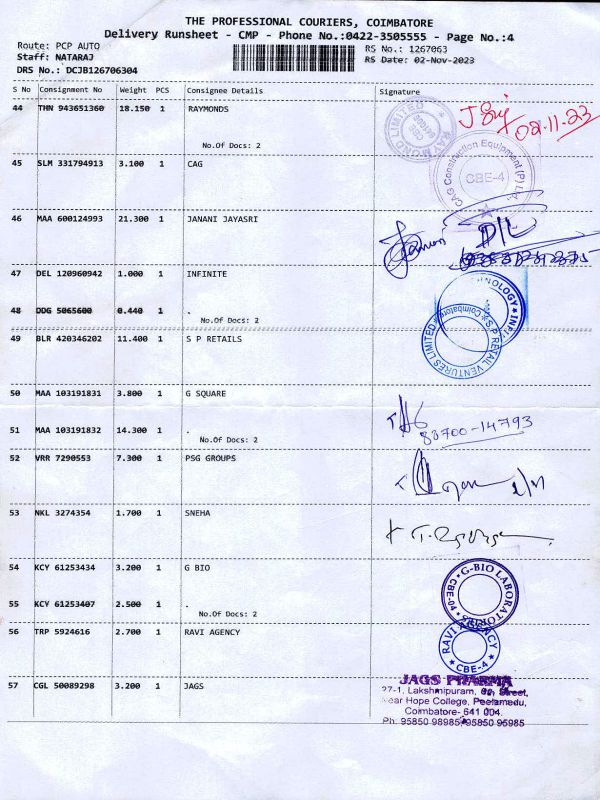 THE PROFESSIONAL COURIERS, COIMBATORE
Delivery Runsheet - CMP - Phone No.:0422-3505555 - Page No.:4
Route: PCP AUTO
RS No.: 1267063
Staff: NATARAJ
RS Date: 02-Nov-2023
DRS No.: DCJB126706304
S No Consignment No Weight PCS Consignee Details Signature
44 THN 943651360 18.150 1 RAYMONDS
02.11.23
RAYMOND LIMITED
No.Of Docs: 2
45 SLM 331794913 3.100 1 CAG
CAG Construction Equipment (P) Ltd.
CBE-4
46 MAA 600124993 21.300 1 JANANI JAYASRI
47 DEL 120960942 1.000 1 INFINITE
48 DDG 5065600 0.440 1 .
No.Of Docs: 2
49 BLR 420346202 11.400 1 S P RETAILS
S P RETAIL VENTURES LIMITED
Coimbatore
50 MAA 103191831 3.800 1 G SQUARE
83700-14793
51 MAA 103191832 14.300 1 .
No.Of Docs: 2
52 VRR 7290553 7.300 1 PSG GROUPS
53 NKL 3274354 1.700 1 SNEHA
54 KCY 61253434 3.200 1 G BIO
G-BIO LABORATORIES
CBE-04
55 KCY 61253407 2.500 1 .
No.Of Docs: 2
56 TRP 5924616 2.700 1 RAVI AGENCY
RAVI AGENCY
CBE-4
57 CGL 50089298 3.200 1 JAGS
JAGS PHARMA
27-1, Lakshmipuram, Street,
Near Hope College, Peelamedu,
Coimbatore- 641 004.
Ph. 95850 98985, 95850 95985